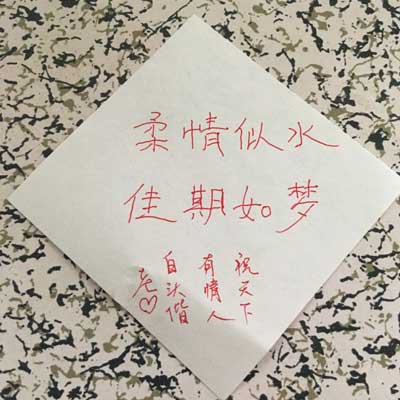 柔情似水
佳期如梦
祝天下
有情人
白头偕
老♡